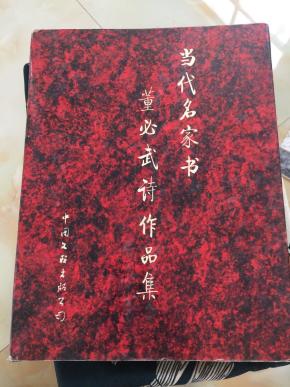 当代名家书
董必武诗作品集
中国文联出版公司